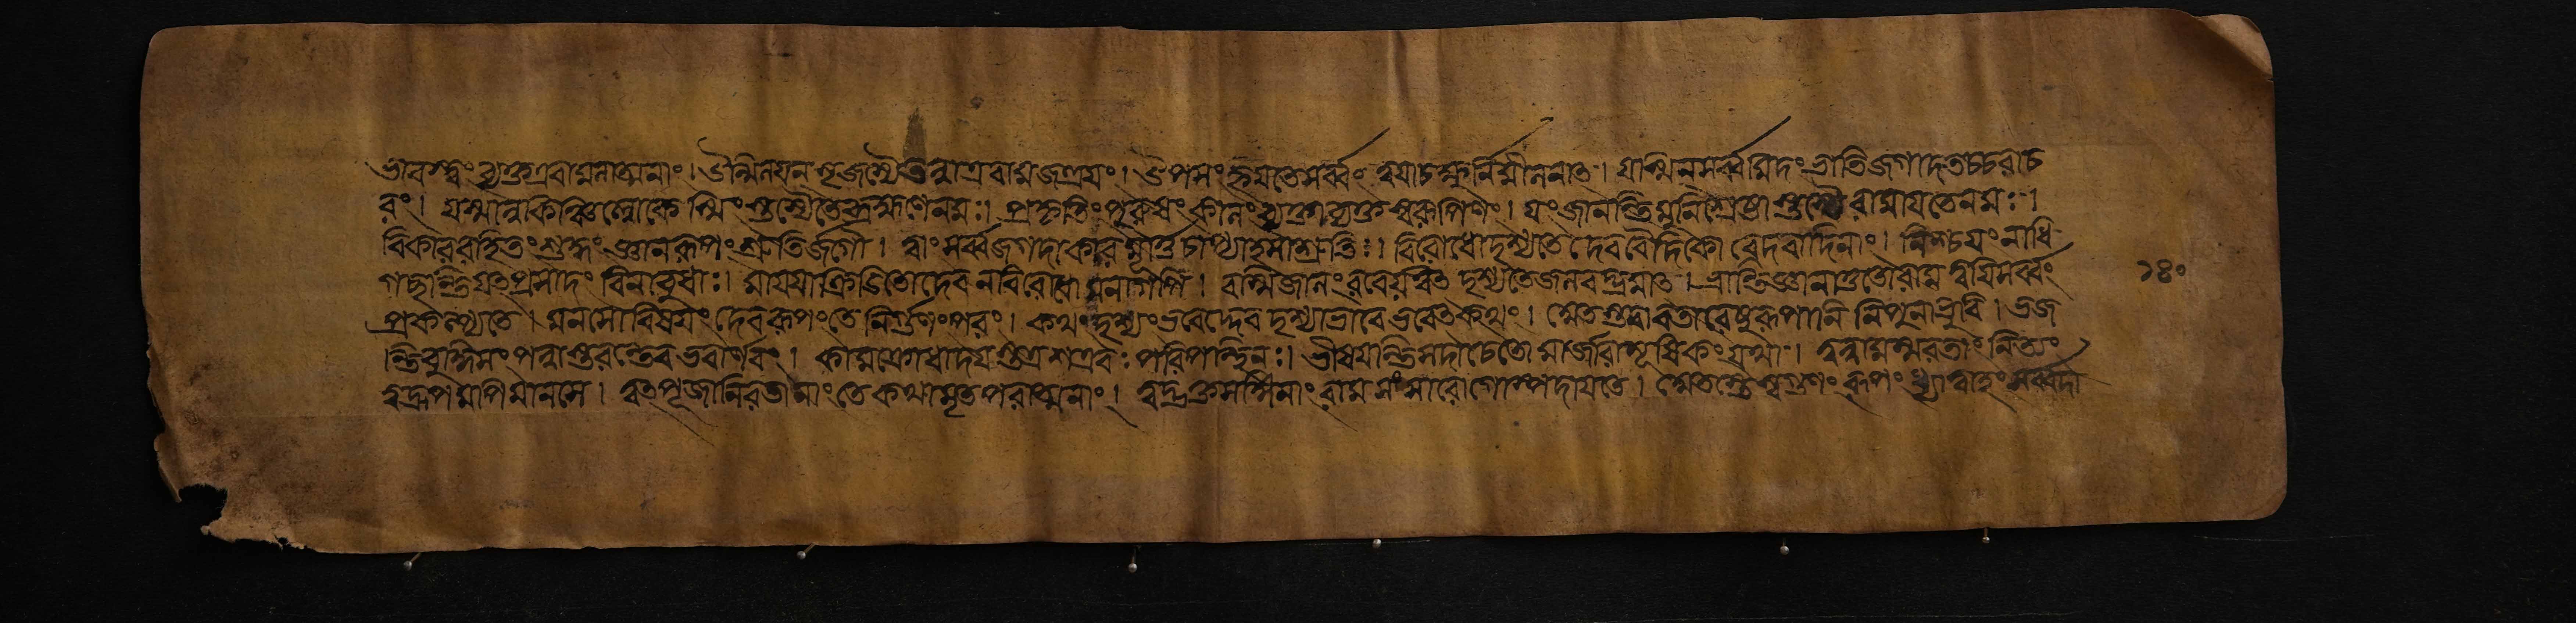 ভাবস্ত্বং ব্যক্তএবামনাত্মনাং। উন্মিলয়ন সৃজস্যৈতন্নেত্রেরামজগত্রয়ং। উপসংহ্রিয়তেসর্ব্বং ত্বয়াচক্ষুর্নির্মীলনাত। যস্মিনসর্ব্বমিদং ভাতিজগদেতচ্চরাচ
রং। যস্মান্নকিঞ্চিল্লোকেস্মিং স্তস্মৈতেব্রহ্মণেনমঃ। প্রকৃতিং পুরুষং কালং ব্যক্তাব্যক্তস্বরূপিণং। যং জানন্তিমুনিশ্রেষ্ঠাস্তস্মৈ রামায়তেনমঃ।
বিকাররহিতং শুদ্ধং জ্ঞানরূপং শ্রুতির্জগৌ। ত্বাং সর্ব্বজগদাকারমূর্ত্তং চাপ্যাহসাশ্রুতিঃ। বিরোধোদৃশ্যতে দেববৈদিকো বেদবাদিনাং। নিশ্চয়ং নাধি
গচ্ছন্তিত্বৎপ্রসাদং বিনাবুধাঃ। মায়য়াক্রিডিতোদেবনবিরোধোমনাগপি। রশ্মিজালং রবের্যদ্বত দৃশ্যতেজলবদ্ভ্রমাত। ভ্রান্তিজ্ঞানাত্তথারাম ত্বয়িসর্ব্বং
প্রকল্প্যতে। মনসোবিষয়ং দেবরূপংতে নির্গুণং পরং। কথং দৃশ্যং ভবেদ্দেব দৃশ্যাভাবে ভবেতকথং। অতস্তবাবতারেষুরূপানি নিপুনাভুবি। ভজ
ন্তিবুদ্ধিসংপন্নাস্তরন্তেব ভবার্ণবং। কামক্রোধাদয়স্তত্রশত্রবঃ পরিপন্থিনঃ। ভীষয়ন্তিসদাচেতো মার্জারামূষিকং যথা। ত্বন্নামস্মরতাং নিত্যং
ত্বদ্রূপমপিমানসে। ত্বৎপূজানিরতানাং তে কথামৃতপরাত্মনাং। ত্বদ্ভক্তসঙ্গিনাং রাম সংসারোগোষ্পদায়তে। অতস্তেসগুণং রূপং ধ্যাত্বাহং সর্ব্বদা
১৪০